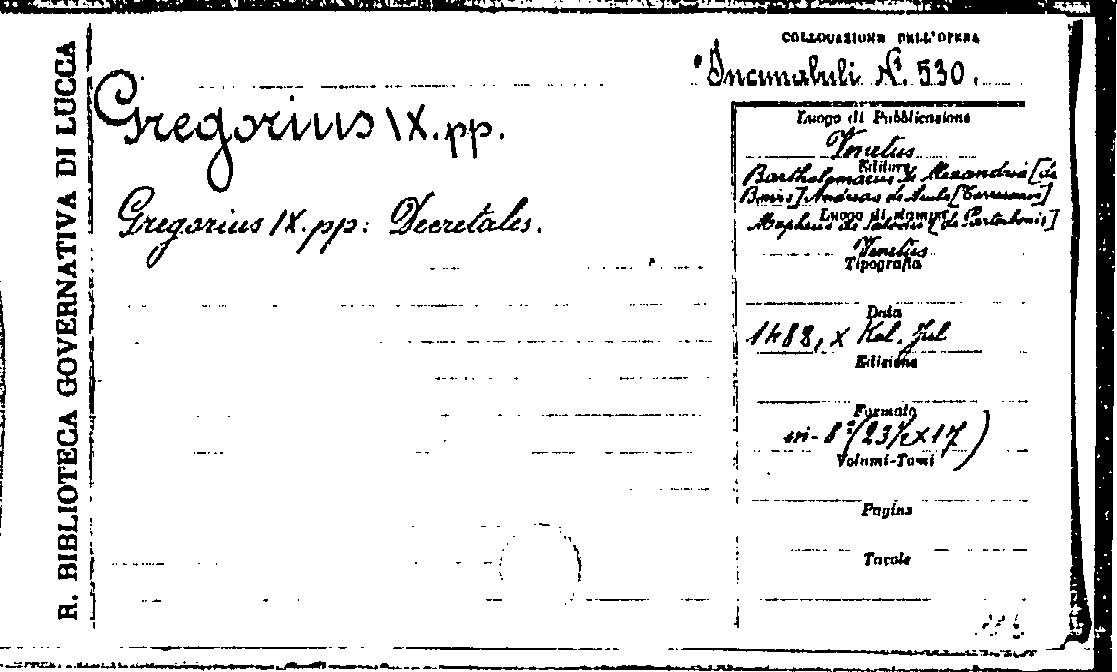 R. BIBLIOTECA GOVERNATIVA DI LUCCA
COLLOCAZIONE DELL'OPERA
Incunabuli N. 530.
Gregorius IX. pp.
Gregorius IX. pp: Decretales.
Luogo di Pubblicazione
Venetus
Editore
Bartholomaeus de Alexandria [de
Bonis] Andreas de Asula [Torresanus]
Luogo di stampa
Mapheus de Salodio [de Paterbonis]
Venetiis
Tipografia
Data
1488, x Kal. Jul
Edizione
Formato
in-8° (23½x17)
Volumi-Tomi
Pagine
Tavole